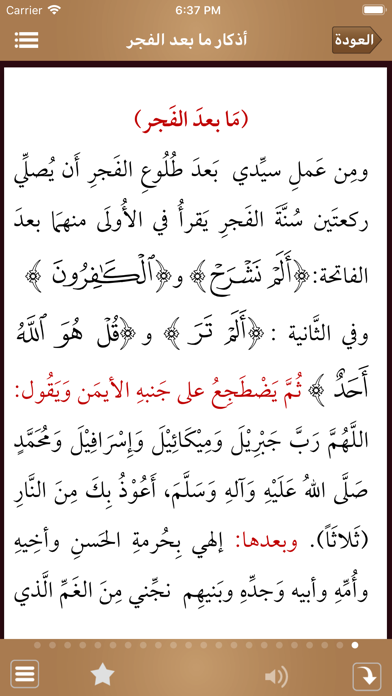 Carrier 6:37 PM
العودة أذكار ما بعد الفجر
(مَا بعدَ الفَجر)
ومِن عَملِ سيِّدي بَعدَ طُلُوعِ الفَجرِ أَن يُصلِّي
ركعتَين سُنَّةَ الفَجرِ يَقرأُ في الأُولَى منهمَا بعدَ
الفاتحة: ﴿أَلَمْ نَشْرَحْ﴾ و﴿ٱلْكَٰفِرُونَ﴾
وفي الثَّانية : ﴿أَلَمْ تَرَ ﴾ و ﴿قُلْ هُوَ ٱللَّهُ
أَحَدٌ ﴾ ثُمَّ يَضْطَجِعُ على جَنبهِ الأيمَن وَيَقُول:
اللَّهُمَّ رَبَّ جَبْرِيْلَ وَمِيْكَائِيْلَ وَإِسْرَافِيْلَ وَمُحَمَّدٍ
صَلَّى اللهُ عَلَيْهِ وَآلِهِ وَسَلَّمَ، أَعُوْذُ بِكَ مِنَ النَّارِ
(ثَلاثَاً). وبعدها: إلهي بِحُرمةِ الحَسنِ وأخِيهِ
وأُمِّهِ وأبيه وَجدِّهِ وبَنيهِم نجِّني مِنَ الغَمِّ الَّذي